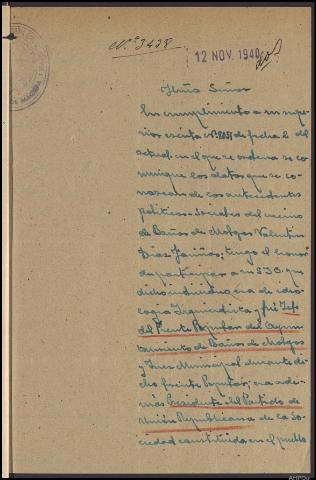 Nº 3438
12 NOV. 1940
Ilmo Señor
En cumplimiento a su supe-
rior escrito nº 8851 de fecha 2 del
actual en el que se ordena se co-
munique los datos que se co-
nozcan de los antecedentes
político-sociales del vecino
de Baños de Molgas Valentin
Diaz; tengo el honor
de participar a V.S.I. que
dicho individuo era de ideo-
logia Izquierdista y fué Jefe
del Frente Popular del Ayun-
tamiento de Baños de Molgas
y Juez Municipal durante di-
cho frente Popular; era ade-
más Presidente del Partido de
Unión Republicana de la So-
ciedad constituida en el pueblo
AHPOu